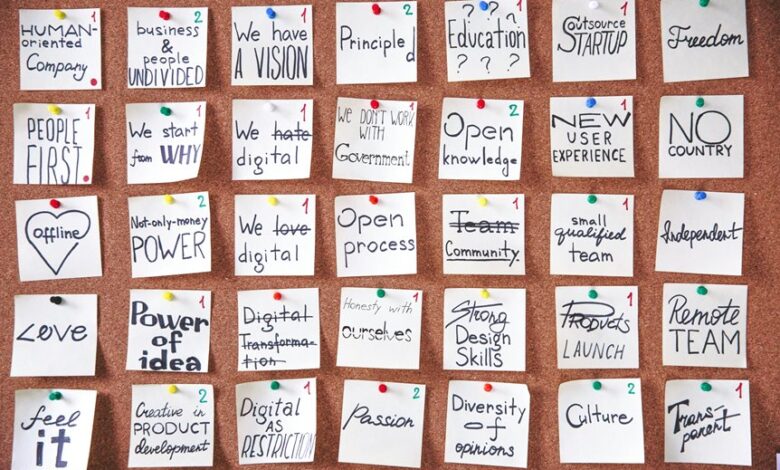 HUMAN-
oriented
Company
2
business
&
people
UNDIVIDED
1
We have
A VISION
2
Principled
1
? ? ?
Education
? ? ?
1
Outsource
STARTUP
Freedom
1
PEOPLE
FIRST.
1
We start
from WHY
1
We hate
digital
1
WE DON'T WORK
WITH
Government
2
Open
knowledge
1
NEW
USER
EXPERIENCE
NO
COUNTRY
offline
2
Not-only-money
POWER
1
We love
digital
1
Open
process
1
Team
Community
1
small
qualified
team
Independent
Love
1
Power
of
idea
1
Digital
Transforma-
tion
1
Honesty with
ourselves
Strong
Design
Skills
1
Products
LAUNCH
2
Remote
TEAM
2
feel
it
2
Creative in
PRODUCT
development
1
Digital
AS
RESTRICTION
2
Passion
1
Diversity
of
opinions
2
Culture
1
Trans-
parent